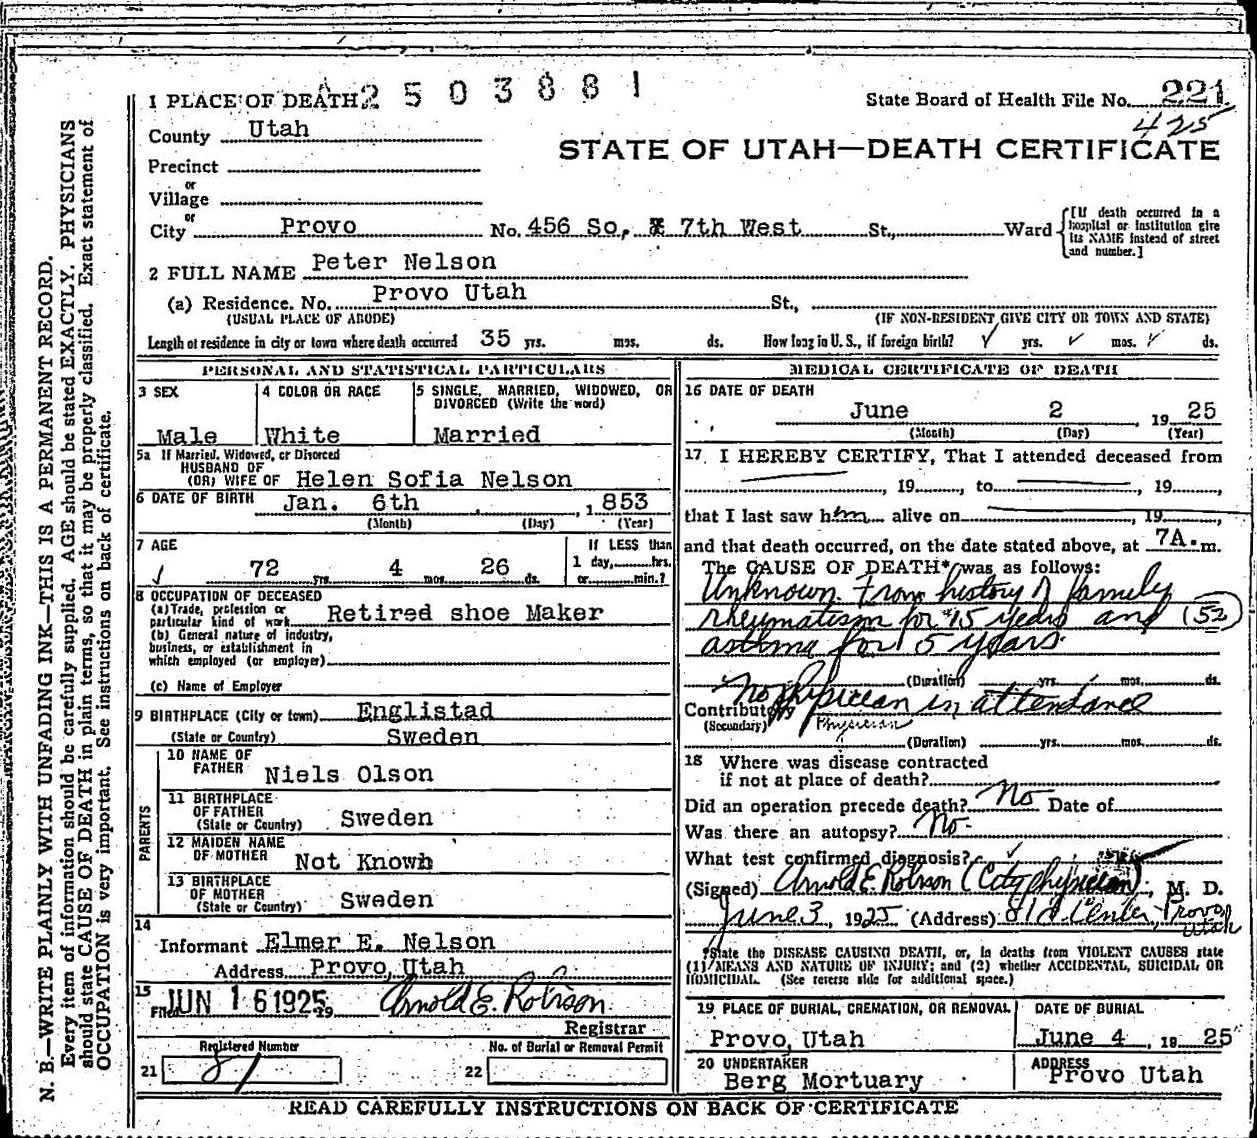 2503881
1 PLACE OF DEATH
State Board of Health File No. 221
425
County Utah
STATE OF UTAH—DEATH CERTIFICATE
Precinct
or
Village
or
City Provo No. 456 So, 7th West St., Ward
[If death occurred in a hospital or institution give its NAME instead of street and number.]
2 FULL NAME Peter Nelson
(a) Residence. No. Provo Utah St.,
(USUAL PLACE OF ABODE) (IF NON-RESIDENT GIVE CITY OR TOWN AND STATE)
Length of residence in city or town where death occurred 35 yrs. mos. ds. How long in U. S., if foreign birth? yrs. mos. ds.
PERSONAL AND STATISTICAL PARTICULARS
3 SEX Male
4 COLOR OR RACE White
5 SINGLE, MARRIED, WIDOWED, OR DIVORCED (Write the word) Married
5a If Married, Widowed, or Divorced
HUSBAND OF
(OR) WIFE OF Helen Sofia Nelson
6 DATE OF BIRTH Jan. 6th , 1853
(Month) (Day) (Year)
7 AGE
72 yrs. 4 mos. 26 ds.
If LESS than
1 day, hrs.
or min.?
8 OCCUPATION OF DECEASED
(a) Trade, profession or
particular kind of work Retired shoe Maker
(b) General nature of industry,
business, or establishment in
which employed (or employer)
(c) Name of Employer
9 BIRTHPLACE (City or town) Englistad
(State or Country) Sweden
PARENTS
10 NAME OF
FATHER Niels Olson
11 BIRTHPLACE
OF FATHER
(State or Country) Sweden
12 MAIDEN NAME
OF MOTHER Not Known
13 BIRTHPLACE
OF MOTHER
(State or Country) Sweden
14
Informant Elmer E. Nelson
Address Provo, Utah
15
Filed JUN 16 1925 19 Arnold E. Robison
Registrar
Registered Number
21 81
No. of Burial or Removal Permit
22
MEDICAL CERTIFICATE OF DEATH
16 DATE OF DEATH
June 2 19 25
(Month) (Day) (Year)
17 I HEREBY CERTIFY, That I attended deceased from
, 19 , to , 19 ,
that I last saw him alive on , 19 ,
and that death occurred, on the date stated above, at 7A. m.
The CAUSE OF DEATH* was as follows:
Unknown. From history of family
rheumatism for 15 years and (52)
asthma for 5 years.
(Duration) yrs. mos. ds.
No physician in attendance
Contributory
(Secondary) Physician
(Duration) yrs. mos. ds.
18 Where was disease contracted
if not at place of death?
Did an operation precede death? No Date of
Was there an autopsy? No.
What test confirmed diagnosis?
(Signed) Arnold E. Robison (City physician), M. D.
June 3, 1925 (Address) Center, Provo
Utah
*State the DISEASE CAUSING DEATH, or, in deaths from VIOLENT CAUSES state
(1) MEANS AND NATURE OF INJURY; and (2) whether ACCIDENTAL, SUICIDAL OR
HOMICIDAL. (See reverse side for additional space.)
19 PLACE OF BURIAL, CREMATION, OR REMOVAL
Provo, Utah
DATE OF BURIAL
June 4, 19 25
20 UNDERTAKER
Berg Mortuary
ADDRESS
Provo Utah
READ CAREFULLY INSTRUCTIONS ON BACK OF CERTIFICATE
N. B.—WRITE PLAINLY WITH UNFADING INK—THIS IS A PERMANENT RECORD.
Every item of information should be carefully supplied. AGE should be stated EXACTLY. PHYSICIANS
should state CAUSE OF DEATH in plain terms, so that it may be properly classified. Exact statement of
OCCUPATION is very important. See instructions on back of certificate.